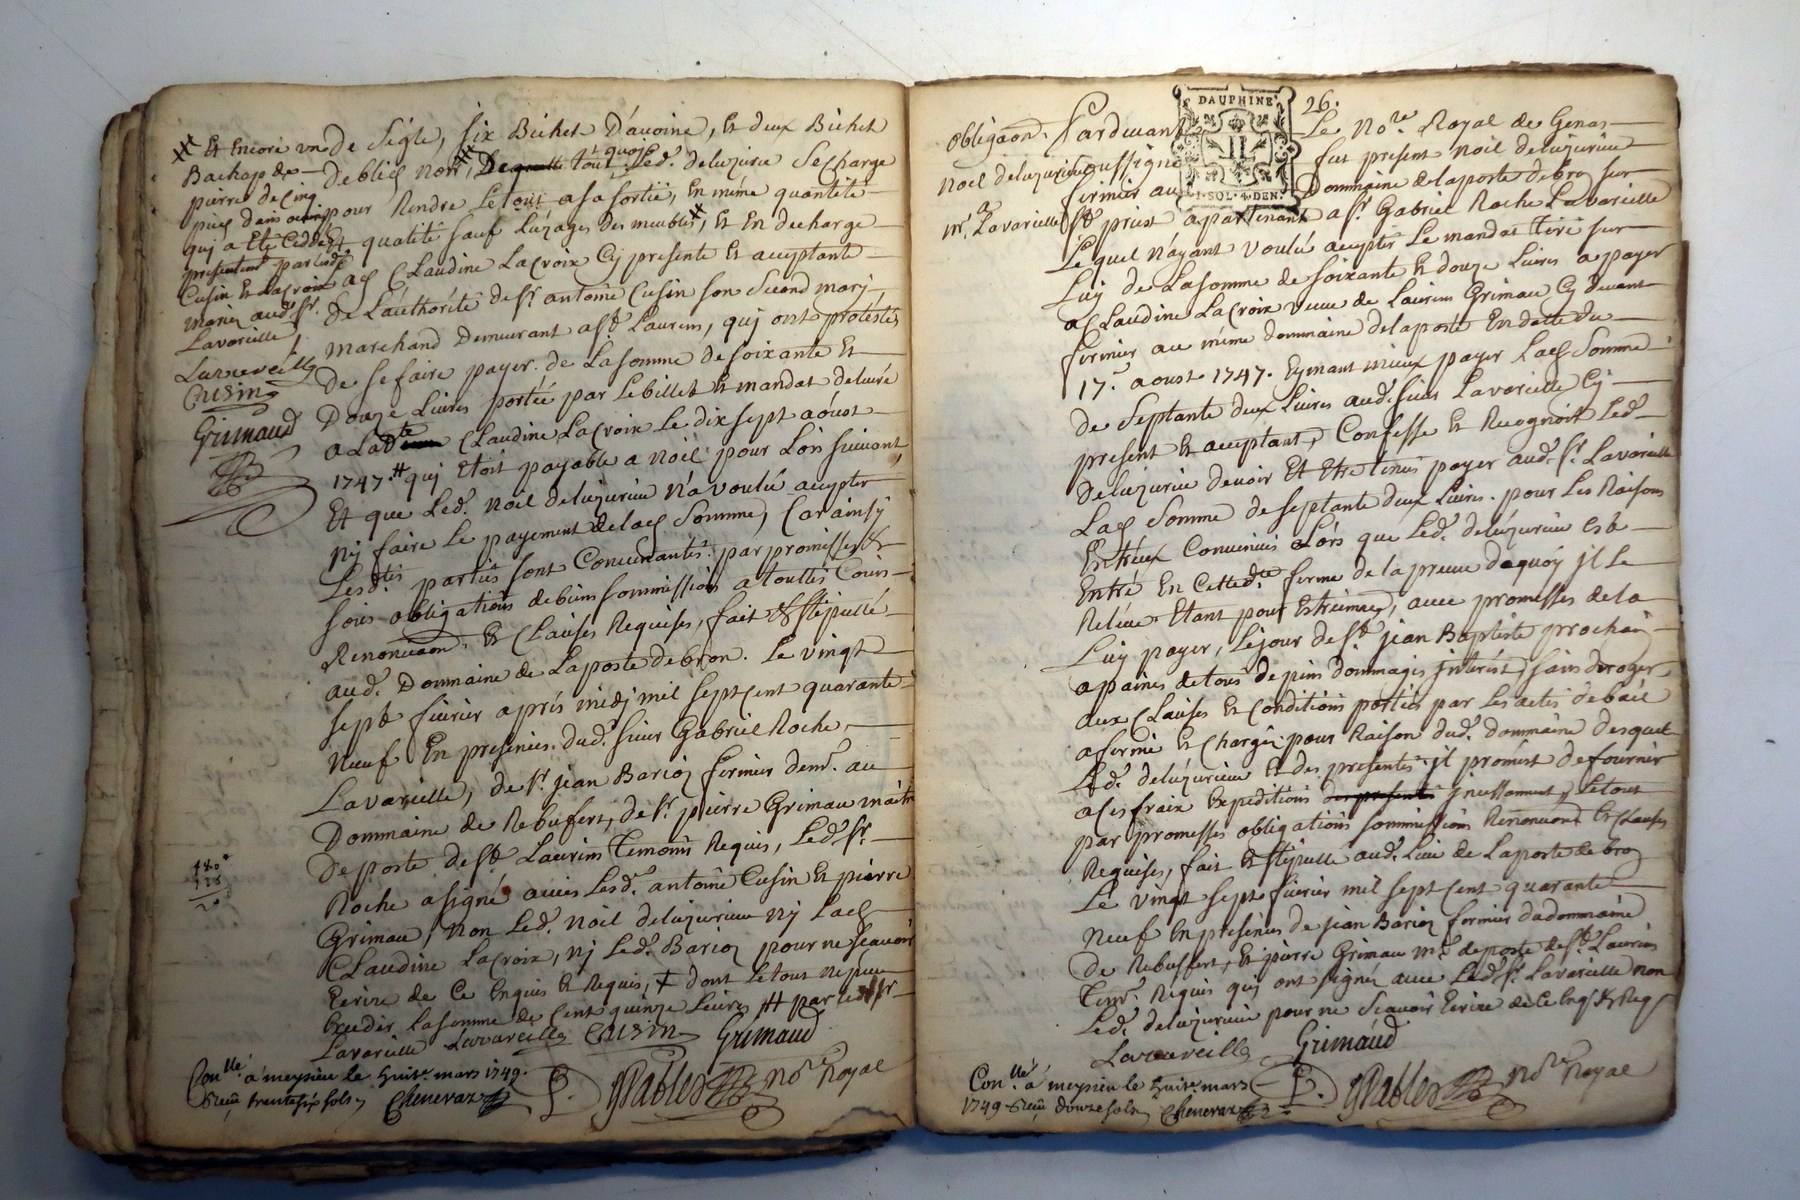 # Et Encore un
Bachap de
pierre de cinq
pieds dans oeuvre
qui a Eté Cedde
presentemt par lesd
Cusin et Lacroix
mariez aud. Sr.
Lavareille
Lavareille
Cusin
Grimaud
de Sigle, six Bichet D'avoine, Et deux Bichet
de bled noir, De quoy Led. deluzurieu se charge
pour Rendre Le tout a sa sortie, En même quantité
Et qualité sauf L'uzages des meubles, Et En decharge
a Claudine Lacroix Cy presente Et acceptante
de L'authorité de Sr. antoine Cusin son second mary
marchand Demeurant a St. Laurens, qui ont protésté
de se faire payer de La somme de soixante Et
Douze Livres portée par Le billet Et mandat delivré
a Lad.te Claudine Lacroix Le dix sept aóust
1747. # qui Etoit payable a Noël pour Lors suivant
Et que Led. Noël deluzurieu N'a voulu accepter
Ny faire Le payement de lad. Somme, Car ainsy
Lesd.tes parties sont Convenantes. par promesses &
sous obligations de biens sommissions a touttes Cours
Renonciaon. Et Clauses Requises, fait & stipullé
aud. Dommaine de La poste de bron. Le vingt
sept fevrier aprés midy mil sept Cent quarante
Neuf En presences dud. sieur Gabriel Roche
Lavareille, de Sr. jean Barioz fermier demt. au
Dommaine de Rebufert, de Sr. pierre Grimau maitre
De poste de St. Laurens Temoins Requis, Led. Sr.
Roche a signé avec Lesd. antoine Cusin Et pierre
Grimau, Non Led. Noël deluzurieu Ny Lad.
Claudine Lacroix, Ny Led. Barioz pour ne sçavoir
Ecrire de Ce Enquis Et Requis, + dont Le tout ne peut
Exceder la somme de Cent quinze Livres # par led. Sr.
Lavareille Lavareille Cusin Grimaud
180
20
Con.llé á meysieu le huit.e mars 1749.
Receu trente six sols Chenevaz P. Pables No.re Royal
26.
DAUPHINE
1·SOL·4·DEN.
Obligaon.
Noel deluzurieu
a
mr. Lavareille
Pardevant Le No.re Royal de Genas
soussigné fut present Noël deluzurieu
fermier au Dommaine de la poste de bron sur
St. priest apartenant a Sr. Gabriel Roche Lavareille
Le quel N'ayant voulu accepter Le mandat tiré sur
Luy de La somme de soixante Et douze Livres a payer
a Claudine Lacroix veuve de Laurens Grimau Cy devant
fermier au même dommaine de la poste En datte du
17. aoust 1747. Eymant mieux payer Lad. Somme
de Septante deux Livres aud. sieur Lavareille Cy
present Et acceptant, Confesse Et Recognoit Led.
deluzurieu devoir Et Etre tenus payer aud. Sr. Lavareille
Lad. Somme de septante deux Livres. pour Les Raisons
Entreux Convenues Lórs que Led. deluzurieu est
Entré En Cette d.te ferme de la preuve dequoy il Le
Releve Etant pour Estreinnes, avec promesses de la
Luy payer, Le jour de St. jean Baptiste prochain
a paines de tous depens dommages jnterést, sans deroger
aux Clauses Et Conditions portées par Les actes de bail
a ferme Et Chargé pour Raison dud. dommaine Desquel
Led. deluzurieu Et des presentes il promest de fournir
a ses fraix Expeditions jncessamment, Le tout
par promesses obligations sommissions Renonciaon. Et Clauses
Requises, fait Et stipullé aud. Lieu de La poste de bron
Le vingt sept fevrier mil sept Cent quarante
Neuf En presences de jean Barioz fermier du dommaine
de Rebuffert, Et pierre Grimau m.e de poste de St. Laurens
Tem. Requis qui ont signé avec Led. Sr. Lavareille non
Led. deluzurieu pour ne sçavoir Ecrire de Ce Enq. & Req.
Lavareille Grimaud
Con.llé á meysieu le huit.e mars
1749 Receu douze sols Chenevaz P. Pables No.re Royal